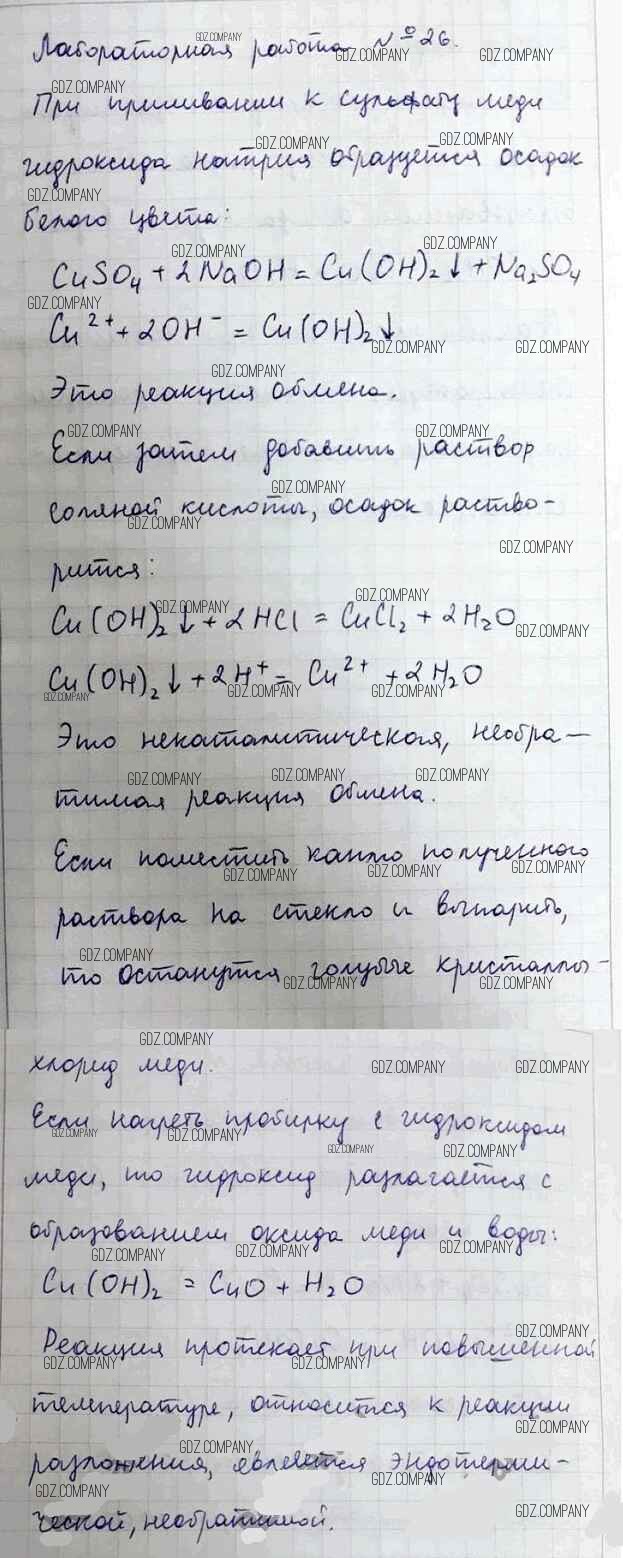 Лабораторная работа №26.
При приливании к сульфату меди
гидроксида натрия образуется осадок
белого цвета:
CuSO₄ + 2NaOH = Cu(OH)₂↓ + Na₂SO₄
Cu²⁺ + 2OH⁻ = Cu(OH)₂↓
Это реакция обмена.
Если затем добавить раствор
соляной кислоты, осадок раство-
рится:
Cu(OH)₂↓ + 2HCl = CuCl₂ + 2H₂O
Cu(OH)₂↓ + 2H⁺ = Cu²⁺ + 2H₂O
Это некаталитическая, необра-
тимая реакция обмена.
Если поместить каплю полученного
раствора на стекло и выпарить,
то останутся голубые кристаллы-
хлорид меди.
Если нагреть пробирку с гидроксидом
меди, то гидроксид разлагается с
образованием оксида меди и воды:
Cu(OH)₂ = CuO + H₂O
Реакция протекает при повышенной
температуре, относится к реакции
разложения, является эндотерми-
ческой, необратимой.
GDZ.COMPANY